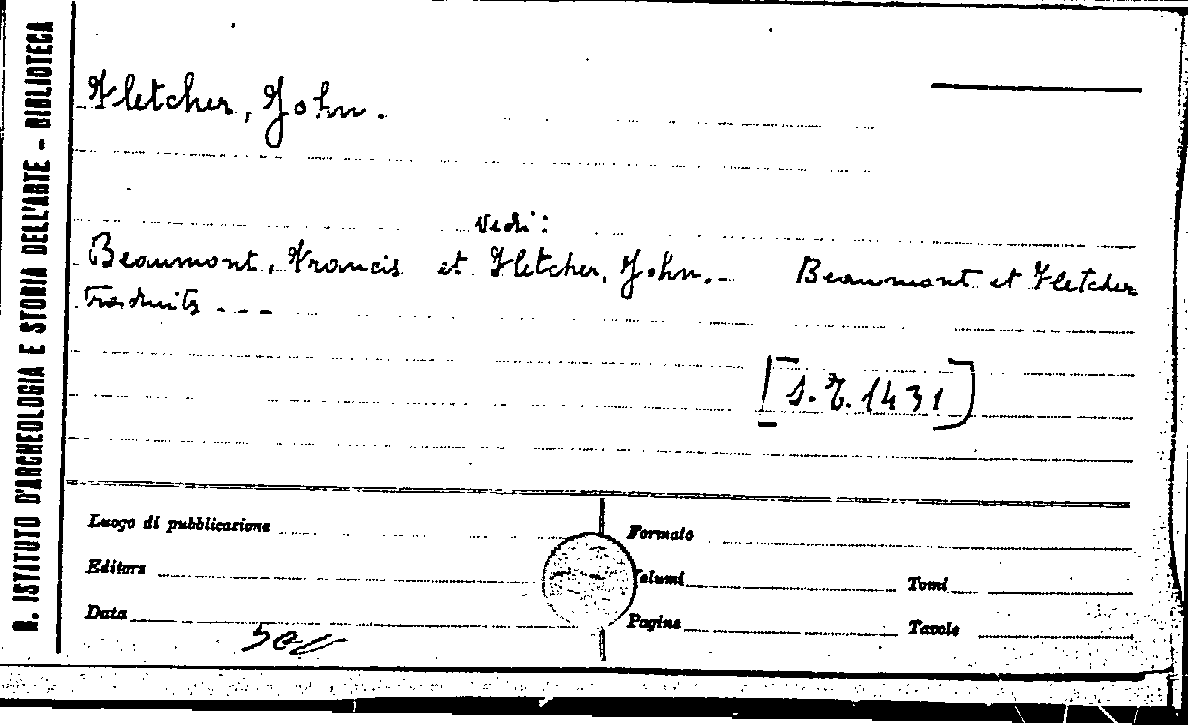 R. ISTITUTO D'ARCHEOLOGIA E STORIA DELL'ARTE - BIBLIOTECA
Fletcher, John.
Vedi:
Beaumont, Francis et Fletcher, John.- Beaumont et Fletcher
traduits - - -
[S.T. 1431]
Luogo di pubblicazione
Formato
Editore
Volumi
Tomi
Data
Pagine
Tavole